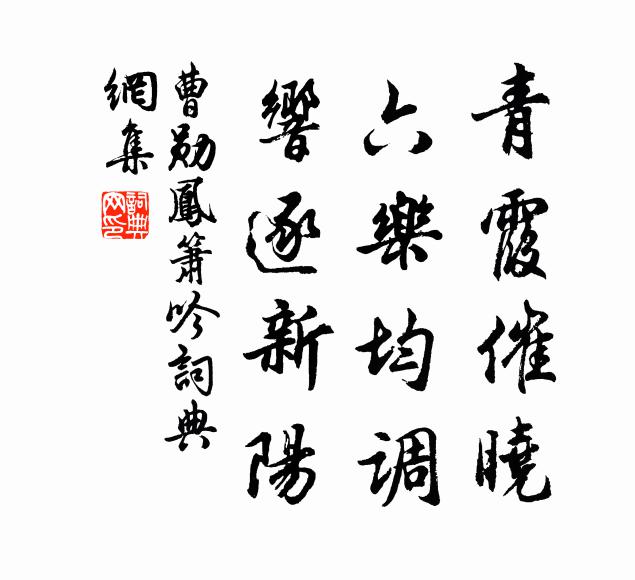 青霞催曉
六樂均调
響逐新陽
曹勛鳳簫吟詞典
網集
詞典
网印